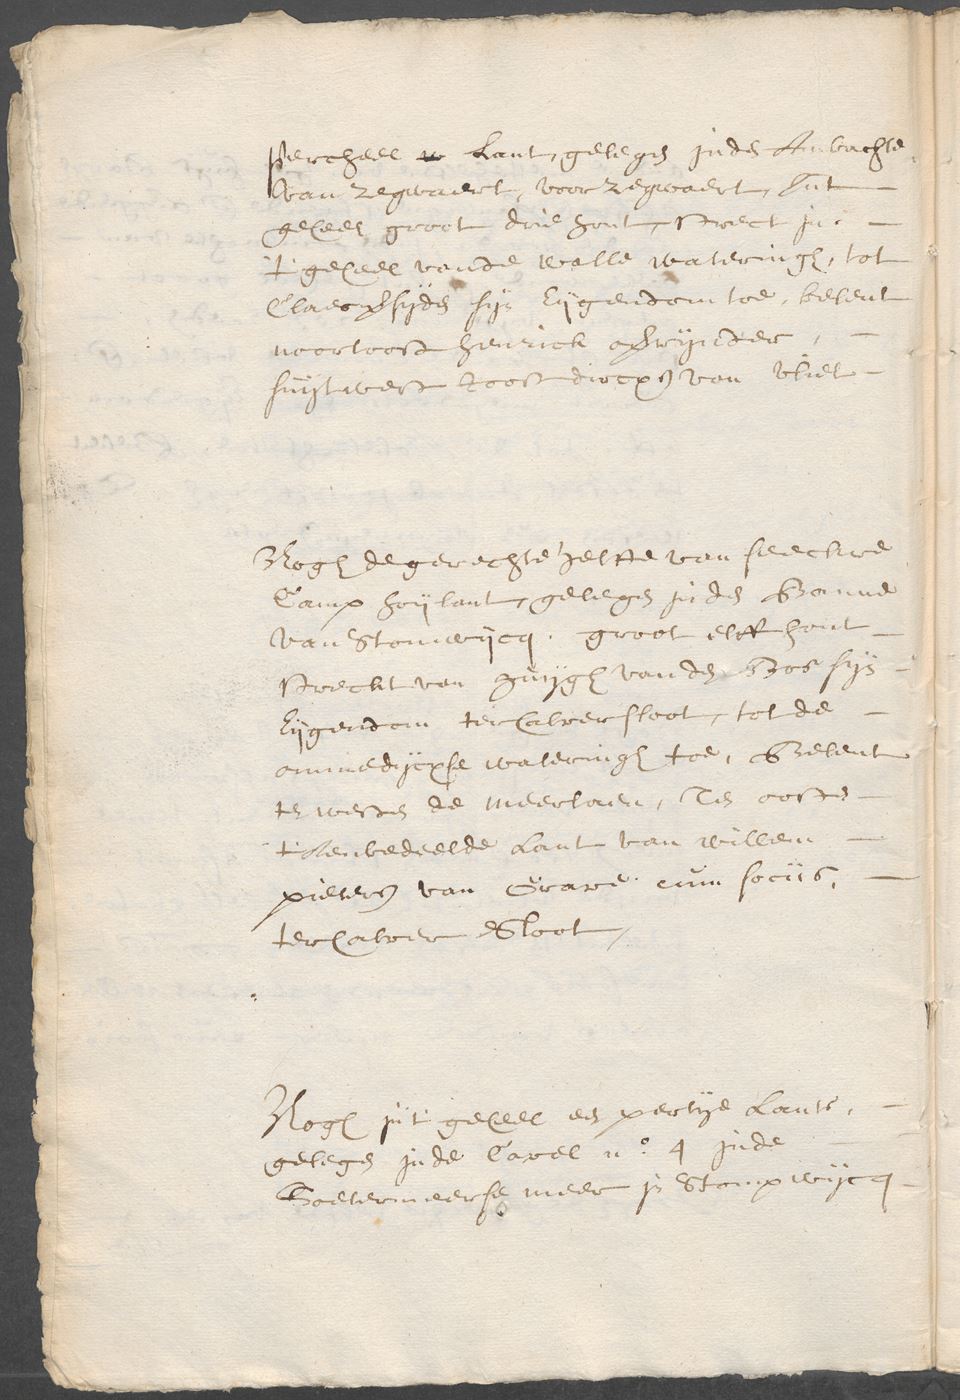 percheel Lant, gelegen inden Ambachte
van Zegwaert, voor Zegwaert, int
geheel groot drie hont, streckt in
t geheel vande walle wateringh, tot
Claes sijn Eijgendom toe, belent
noortoost henrick
suijtwest Joost dircxz van vliet
Nogh de gerechte helfte van seeckere
Camp hoijlant, gelegen inden Banne
van Stomwijcq. groot elff hont
streckt van Huijgh vanden Bos sijn
Eijgendom ter halver sloot, tot de
ommedijcxse wateringh toe, Belent
te westen de meerlaen, Ten oosten
t onbedeelde Lant van willem
pieterz van Grave cum sociis,
ter halver Sloot,
Nogh int geheel een pertije Lants,
gelegen inde Cavel n.o 4 inde
Soetermeerse meer in Stompwijcq